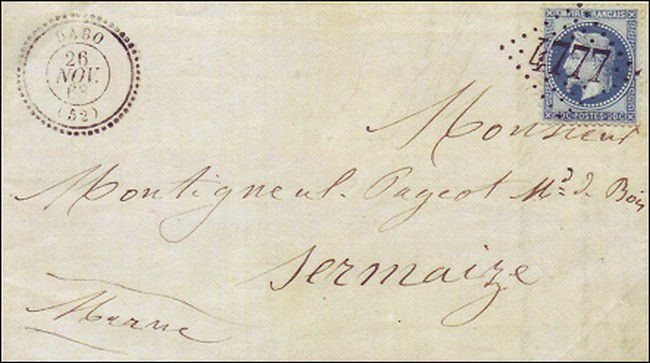 DABO
26
NOV.
68
(52)
EMPIRE FRANÇAIS
4777
20C POSTES 20C
Monsieur
Montigneul-Pageot Md. de Bois
Sermaize
Marne